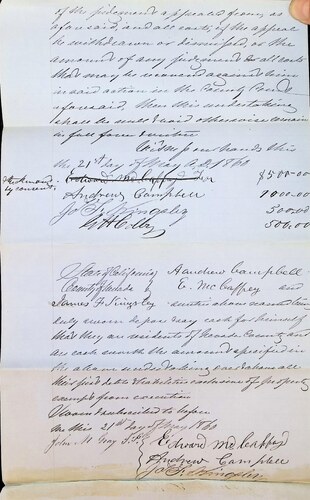 of the judgment appealed from, as
aforesaid, and all costs, if the appeal
be withdrawn or dismissed, or the
amount of any judgment & all costs
that may be recovered against him
in said action in the County Court
aforesaid, then this undertaking
shall be void otherwise remain
in full force & virtue
Witness our hands this
the 21st day of May A.D. 1860
by consent. Edward McCaffey $500.00
Andrew Campbell 1000.00
Jas F. Kingsley 500.00
500.00
State of California
County of Nevada
Andrew Campbell
E. McCaffey and
James F. Kingsley sureties above named
duly sworn each for himself
that they are residents of Nevada County and
are each worth the amount specified in
the above undertaking over & above all
their just debts & liabilities exclusive of property
exempt from execution
Sworn & subscribed to before
me this 21st day of May 1860
John
Edward McCaffey
Andrew Campbell
Jas F. Kingsley